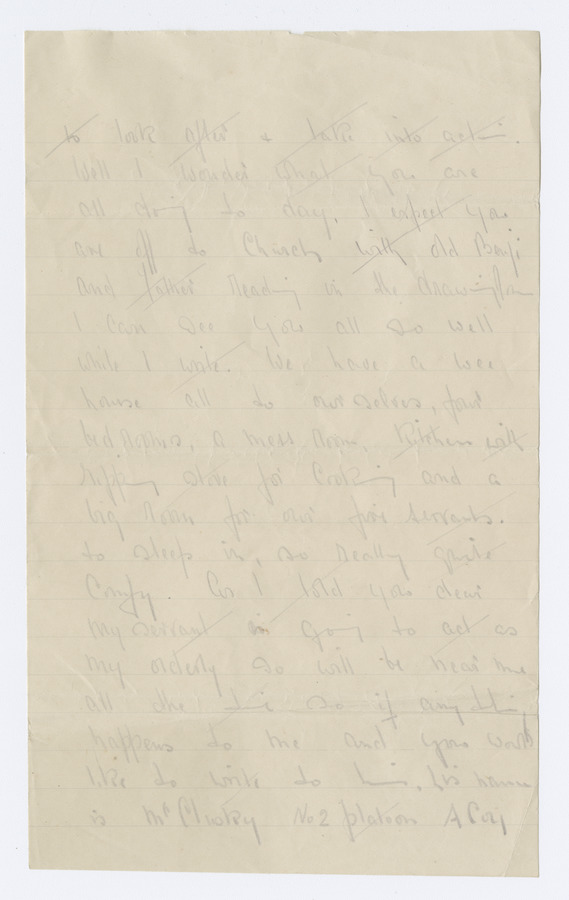 to look after & take into action.
Well I wonder what you are
all doing to day, I expect you
are off to Church with old Benji
and father reading in the drawingroom
I can see you all so well
while I write. We have a wee
house all to ourselves, four
bed rooms, a mess room, kitchen with
ripping stove for cooking and a
big room for our five servants.
to sleep in, so really quite
Comfy. As I told you dear
my servant is going to act as
my orderly so will be near me
all the time so if any thing
happens to me and you would
like to write to him, his name
is McClusky No 2 platoon A Coy